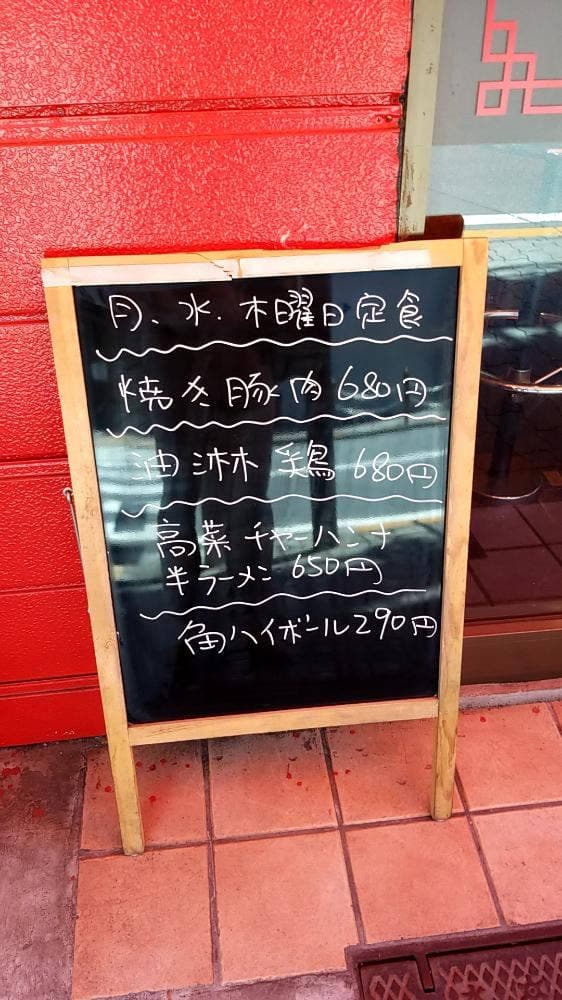 月、水、木曜日定食
焼き豚肉 680円
油淋鶏 680円
高菜チャーハンナ
半ラーメン 650円
角ハイボール290円